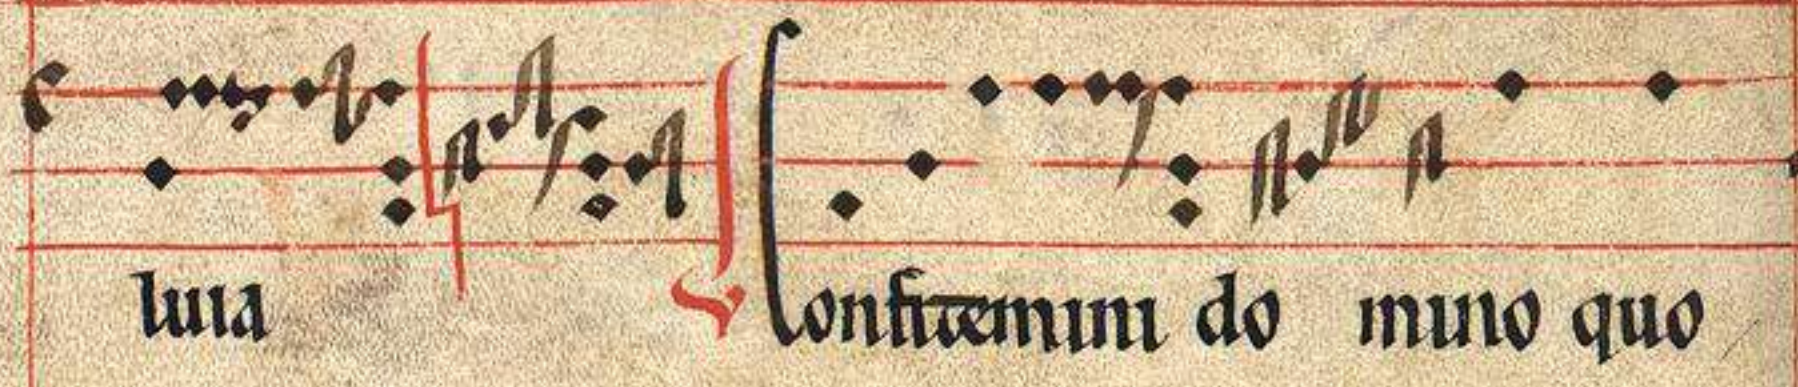 luia ℣ Confitemini do mino quo